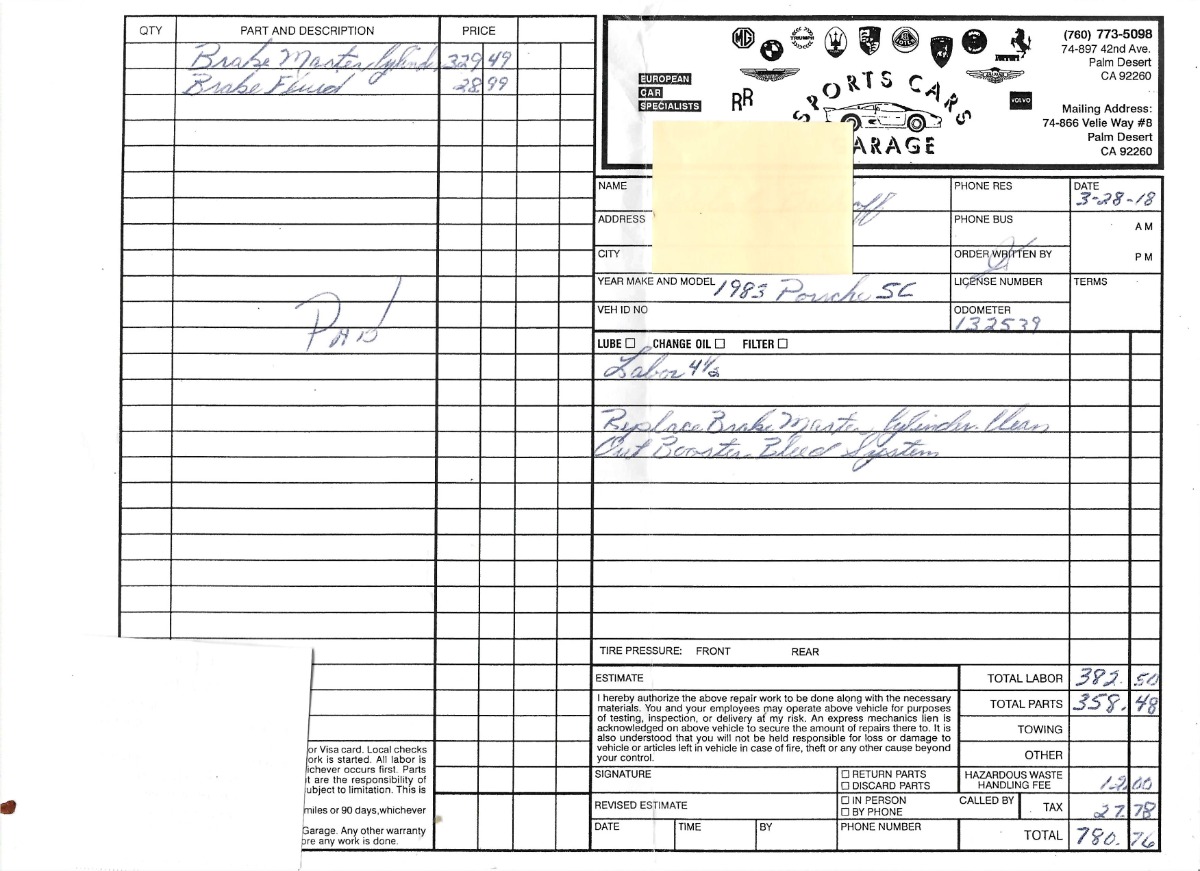 QTY PART AND DESCRIPTION PRICE
Brake Master Cylinder 329 49
Brake Fluid 28.99
PAID
or Visa card. Local checks
ork is started. All labor is
ichever occurs first. Parts
t are the responsibility of
ubject to limitation. This is
miles or 90 days, whichever
Garage. Any other warranty
ore any work is done.
MG
TRIUMPH
LOTUS
Ferrari
EUROPEAN
CAR
SPECIALISTS
RR
VOLVO
SPORTS CARS
GARAGE
(760) 773-5098
74-897 42nd Ave.
Palm Desert
CA 92260
Mailing Address:
74-866 Velie Way #8
Palm Desert
CA 92260
NAME PHONE RES DATE
3-28-18
ADDRESS PHONE BUS AM
CITY ORDER WRITTEN BY PM
YEAR MAKE AND MODEL 1983 Porsche SC LICENSE NUMBER TERMS
VEH ID NO ODOMETER
132539
LUBE CHANGE OIL FILTER
Labor 4 1/2
Replace Brake Master Cylinder. Clean
Out Booster. Bleed System
TIRE PRESSURE: FRONT REAR
ESTIMATE TOTAL LABOR 382.50
I hereby authorize the above repair work to be done along with the necessary
materials. You and your employees may operate above vehicle for purposes
of testing, inspection, or delivery at my risk. An express mechanics lien is
acknowledged on above vehicle to secure the amount of repairs there to. It is
also understood that you will not be held responsible for loss or damage to
vehicle or articles left in vehicle in case of fire, theft or any other cause beyond
your control.
TOTAL PARTS 358.48
TOWING
OTHER
SIGNATURE RETURN PARTS
DISCARD PARTS
HAZARDOUS WASTE
HANDLING FEE 12.00
REVISED ESTIMATE IN PERSON
BY PHONE
CALLED BY TAX 27.78
DATE TIME BY PHONE NUMBER TOTAL 780.76